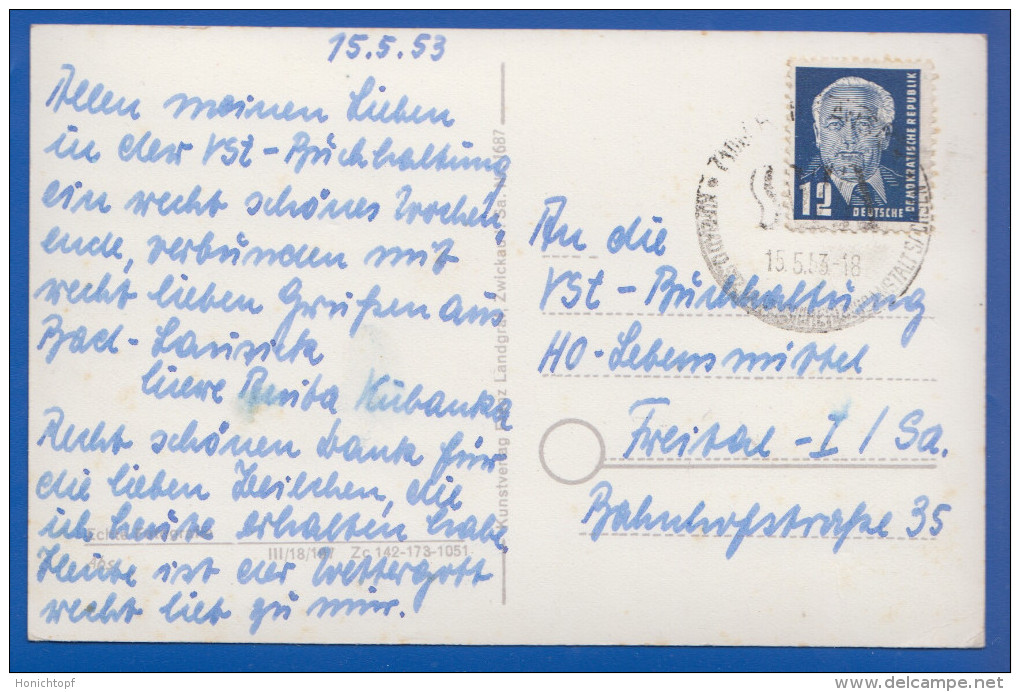 15.5.53
Allen meinen Lieben
in der VSt-Buchhaltung
ein recht schönes Wochen
ende, verbunden mit
recht lieben Grüßen aus
Bad-Lausick
Eure Benita Kubanka
Recht schönen Dank für
die lieben Zeilchen, die
ich heute erhalten habe.
Heute ist der Wettergott
recht lieb zu mir.
III/18/197 Zc 142-173-1051
Kunstverlag Franz Landgraf, Zwickau i. Sa. Nr. 1687
12
DEUTSCHE
DEMOKRATISCHE REPUBLIK
15.5.53-18
An die
VSt-Buchhaltung
HO-Lebensmittel
Freital-I/Sa.
Bahnhofstraße 35
Honichtopf
delcampe.net